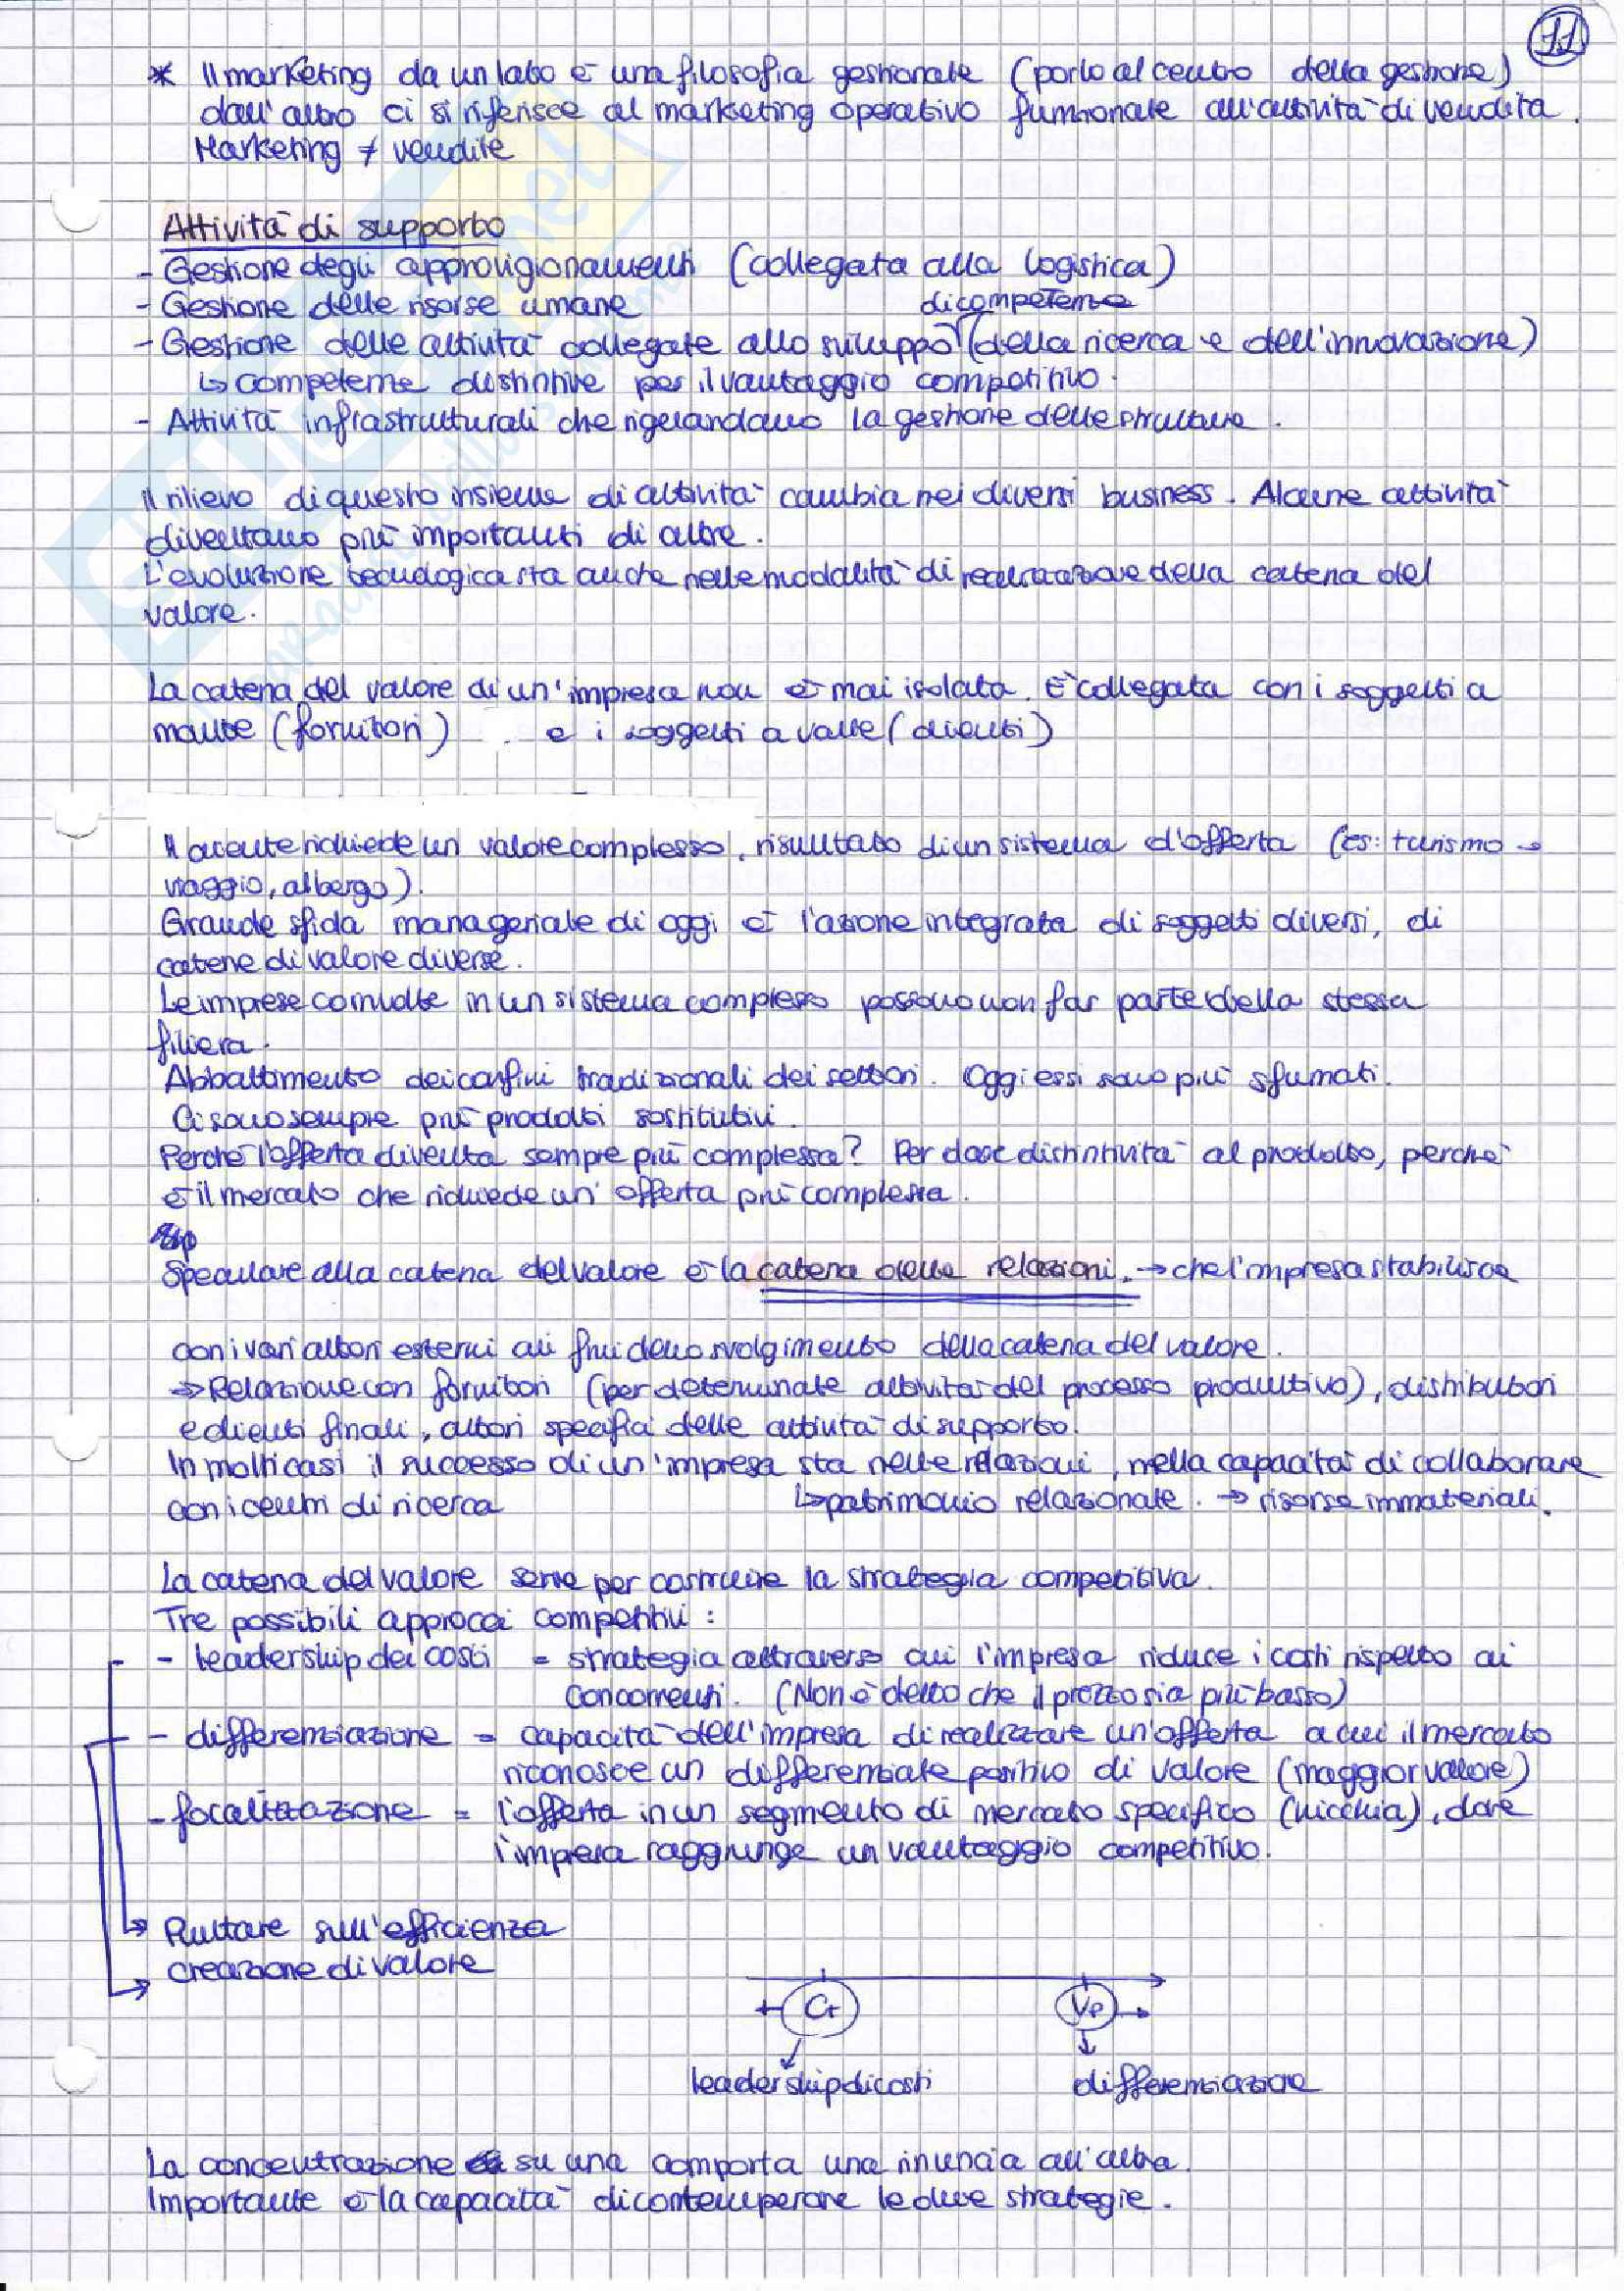 11
* Il marketing da un lato è una filosofia gestionale (porlo al centro della gestione)
dall'altro ci si riferisce al marketing operativo funzionale all'attività di vendita.
Marketing ≠ vendite
Attività di supporto
- Gestione degli approvigionamenti (collegata alla logistica)
- Gestione delle risorse umane di competenze
- Gestione delle attività collegate allo sviluppo (della ricerca e dell'innovazione)
↳ competenze distintive per il vantaggio competitivo.
- Attività infrastrutturali che rigelandano la gestione delle strutture.
Il rilievo di questo insieme di attività cambia nei diversi business. Alcune attività
diventano più importanti di altre.
L'evoluzione tecnologica sta anche nelle modalità di realizzazione della catena del
valore.
La catena del valore di un'impresa non è mai isolata. È collegata con i soggetti a
monte (fornitori) e i soggetti a valle (clienti)
Il cliente richiede un valore complesso, risultato di un sistema d'offerta (es: turismo →
viaggio, albergo).
Grande sfida manageriale di oggi è l'azione integrata di soggetti diversi, di
catene di valore diverse.
Le imprese coinvolte in un sistema complesso possono non far parte della stessa
filiera.
Abbattimento dei confini tradizionali dei settori. Oggi essi sono più sfumati.
Ci sono sempre più prodotti sostitutivi.
Perché l'offerta diventa sempre più complessa? Per dare distintività al prodotto, perché
è il mercato che richiede un'offerta più complessa.
Speculare alla catena del valore è la catena delle relazioni. → che l'impresa stabilisce
con i vari attori esterni ai fini dello svolgimento della catena del valore.
⇒ Relazione con fornitori (per determinate attività del processo produttivo), distributori
e clienti finali, attori specifici delle attività di supporto.
In molti casi il successo di un'impresa sta nelle relazioni, nella capacità di collaborare
con i centri di ricerca ↳ patrimonio relazionale. → risorse immateriali.
La catena del valore serve per costruire la strategia competitiva.
Tre possibili approcci competitivi:
- leadership dei costi = strategia attraverso cui l'impresa riduce i costi rispetto ai
concorrenti. (Non è detto che il prezzo sia più basso)
- differenziazione = capacità dell'impresa di realizzare un'offerta a cui il mercato
riconosce un differenziale positivo di valore (maggior valore)
- focalizzazione = l'offerta in un segmento di mercato specifico (nicchia), dove
l'impresa raggiunge un vantaggio competitivo.
→ Puntare sull'efficienza
→ creazione di valore
Ct Vp
leadership di costi differenziazione
La concentrazione su una comporta una rinuncia all'altra.
Importante è la capacità di contemperare le due strategie.